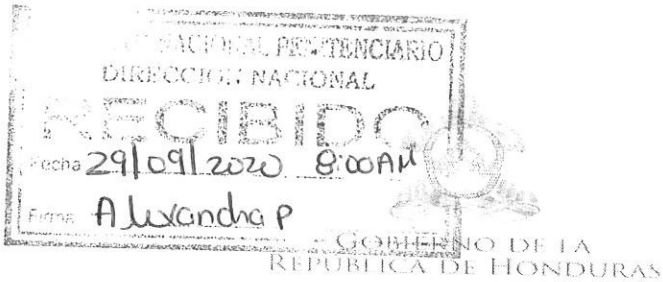 NACIONAL PENITENCIARIO
DIRECCION NACIONAL
RECIBIDO
Fecha 29/09/2020 8:00AM
Firma Alexandra P
GOBIERNO DE LA
REPÚBLICA DE HONDURAS